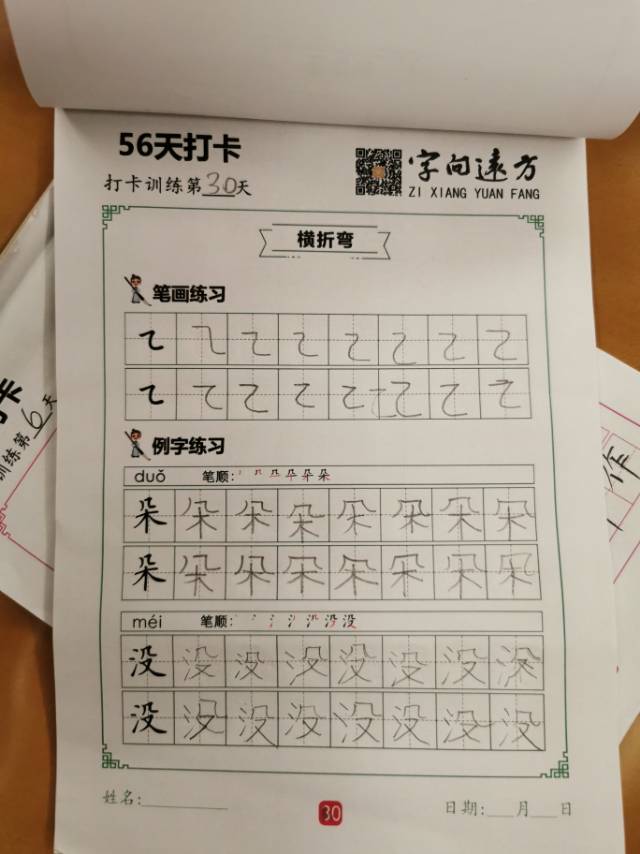 56天打卡
字向远方
打卡训练第30天
ZI XIANG YUAN FANG
横折弯
笔画练习
例字练习
duǒ 笔顺:
朵 朵 朵 朵 朵 朵 朵 朵
朵 朵 朵 朵 朵 朵 朵 朵
méi 笔顺:
没 没 没 没 没 没 没 没
没 没 没 没 没 没 没 没
姓名:
30
日期: 月 日
卡
训练第6天
作